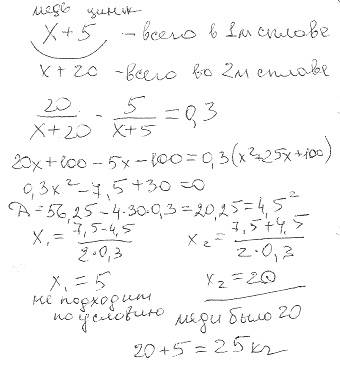 медь цинк
x+5 - всего в 1м сплаве
x+20 - всего во 2м сплаве
20/(x+20) - 5/(x+5) = 0,3
20x+100-5x-100=0,3(x²+25x+100)
0,3x²-7,5+30=0
D=56,25-4·30·0,3=20,25=4,5²
x₁=(7,5-4,5)/(2·0,3) x₂=(7,5+4,5)/(2·0,3)
x₁=5 x₂=20
не подходит
по условию меди было 20
20+5=25кг